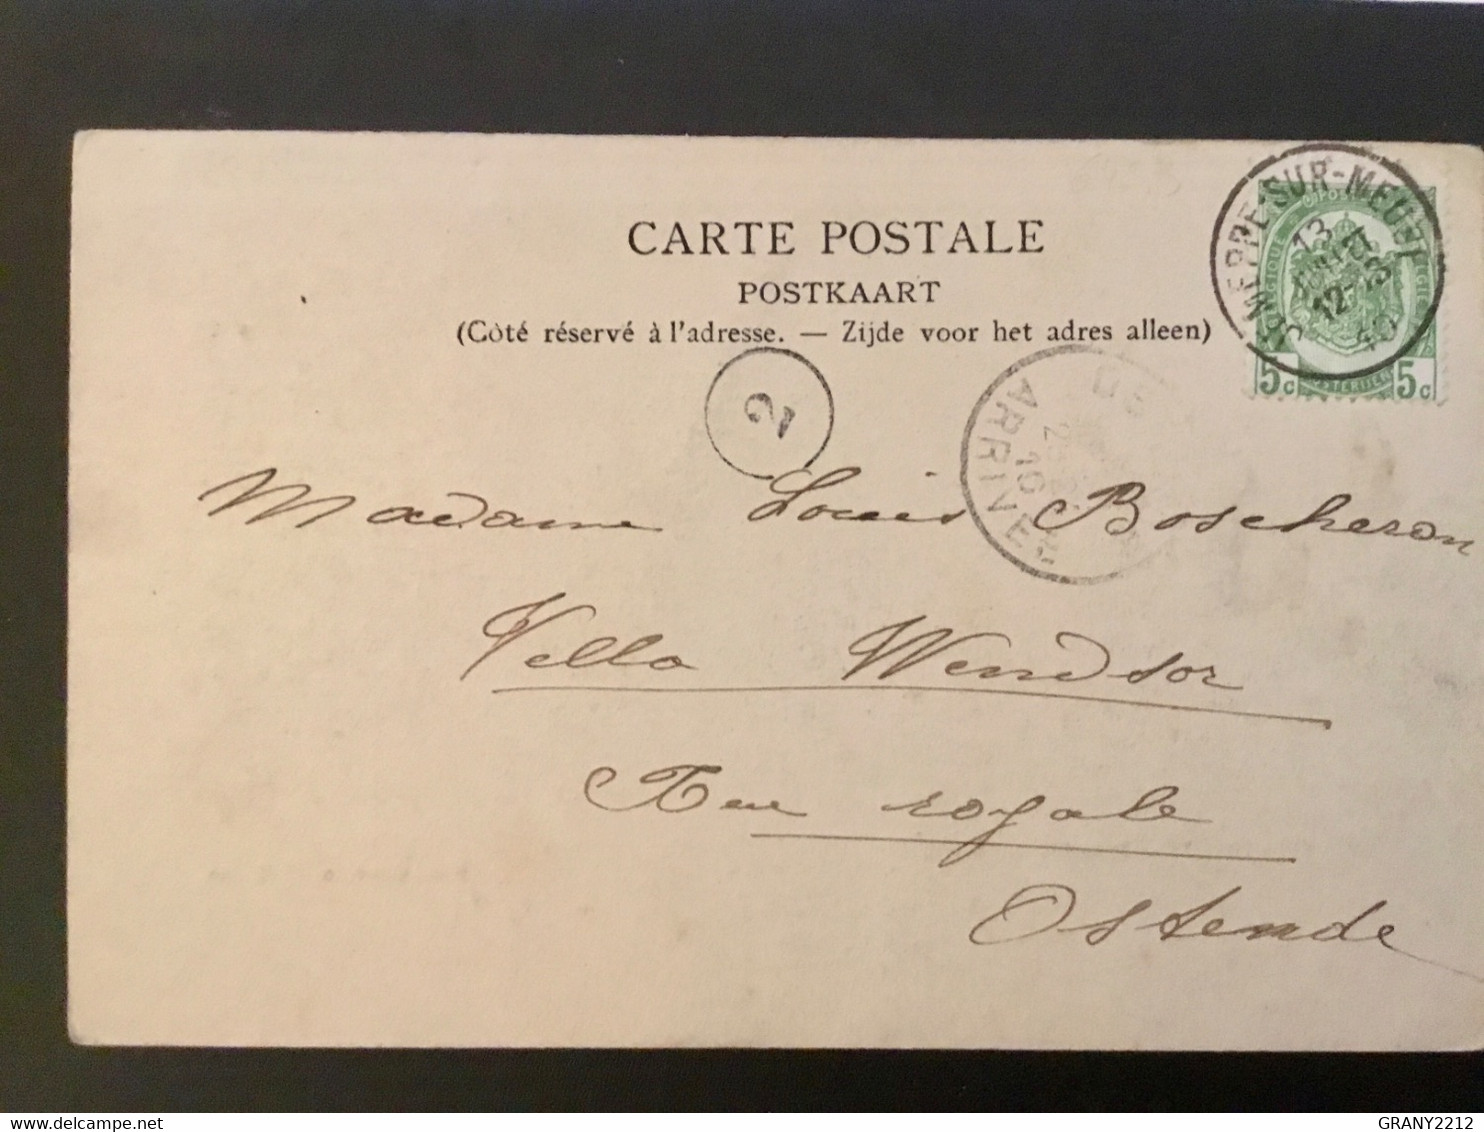 CARTE POSTALE
POSTKAART
(Côté réservé à l'adresse. — Zijde voor het adres alleen)
MEPPE-SUR-MEUSE
13
JUILLET
12-
5c 5c
2
ARRIVÉE
10
Madame Louis Boscheron
Villa Windsor
Rue royale
Ostende
delcampe.net
GRANY2212